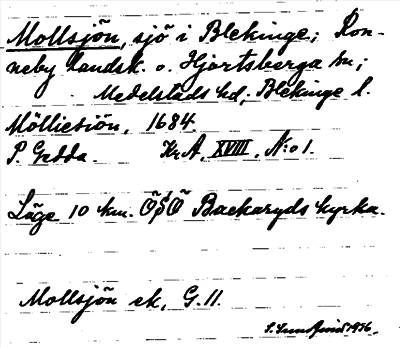 Mollsjön, sjö i Blekinge; Ron-
neby landsk. o. Hjortsberga sn;
Medelstads hd, Blekinge l.
Mölliesiön, 1684.
P. Gedda. Kr.A. XVIII. N:o 1.
Läge 10 km. ÖSÖ Backaryds kyrka.
Mollsjön ek, G. 11.
1936.